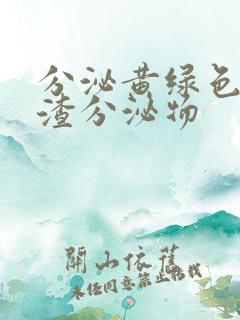 分泌黄绿色
渣分泌物
開山依舊
未经同意禁止转载